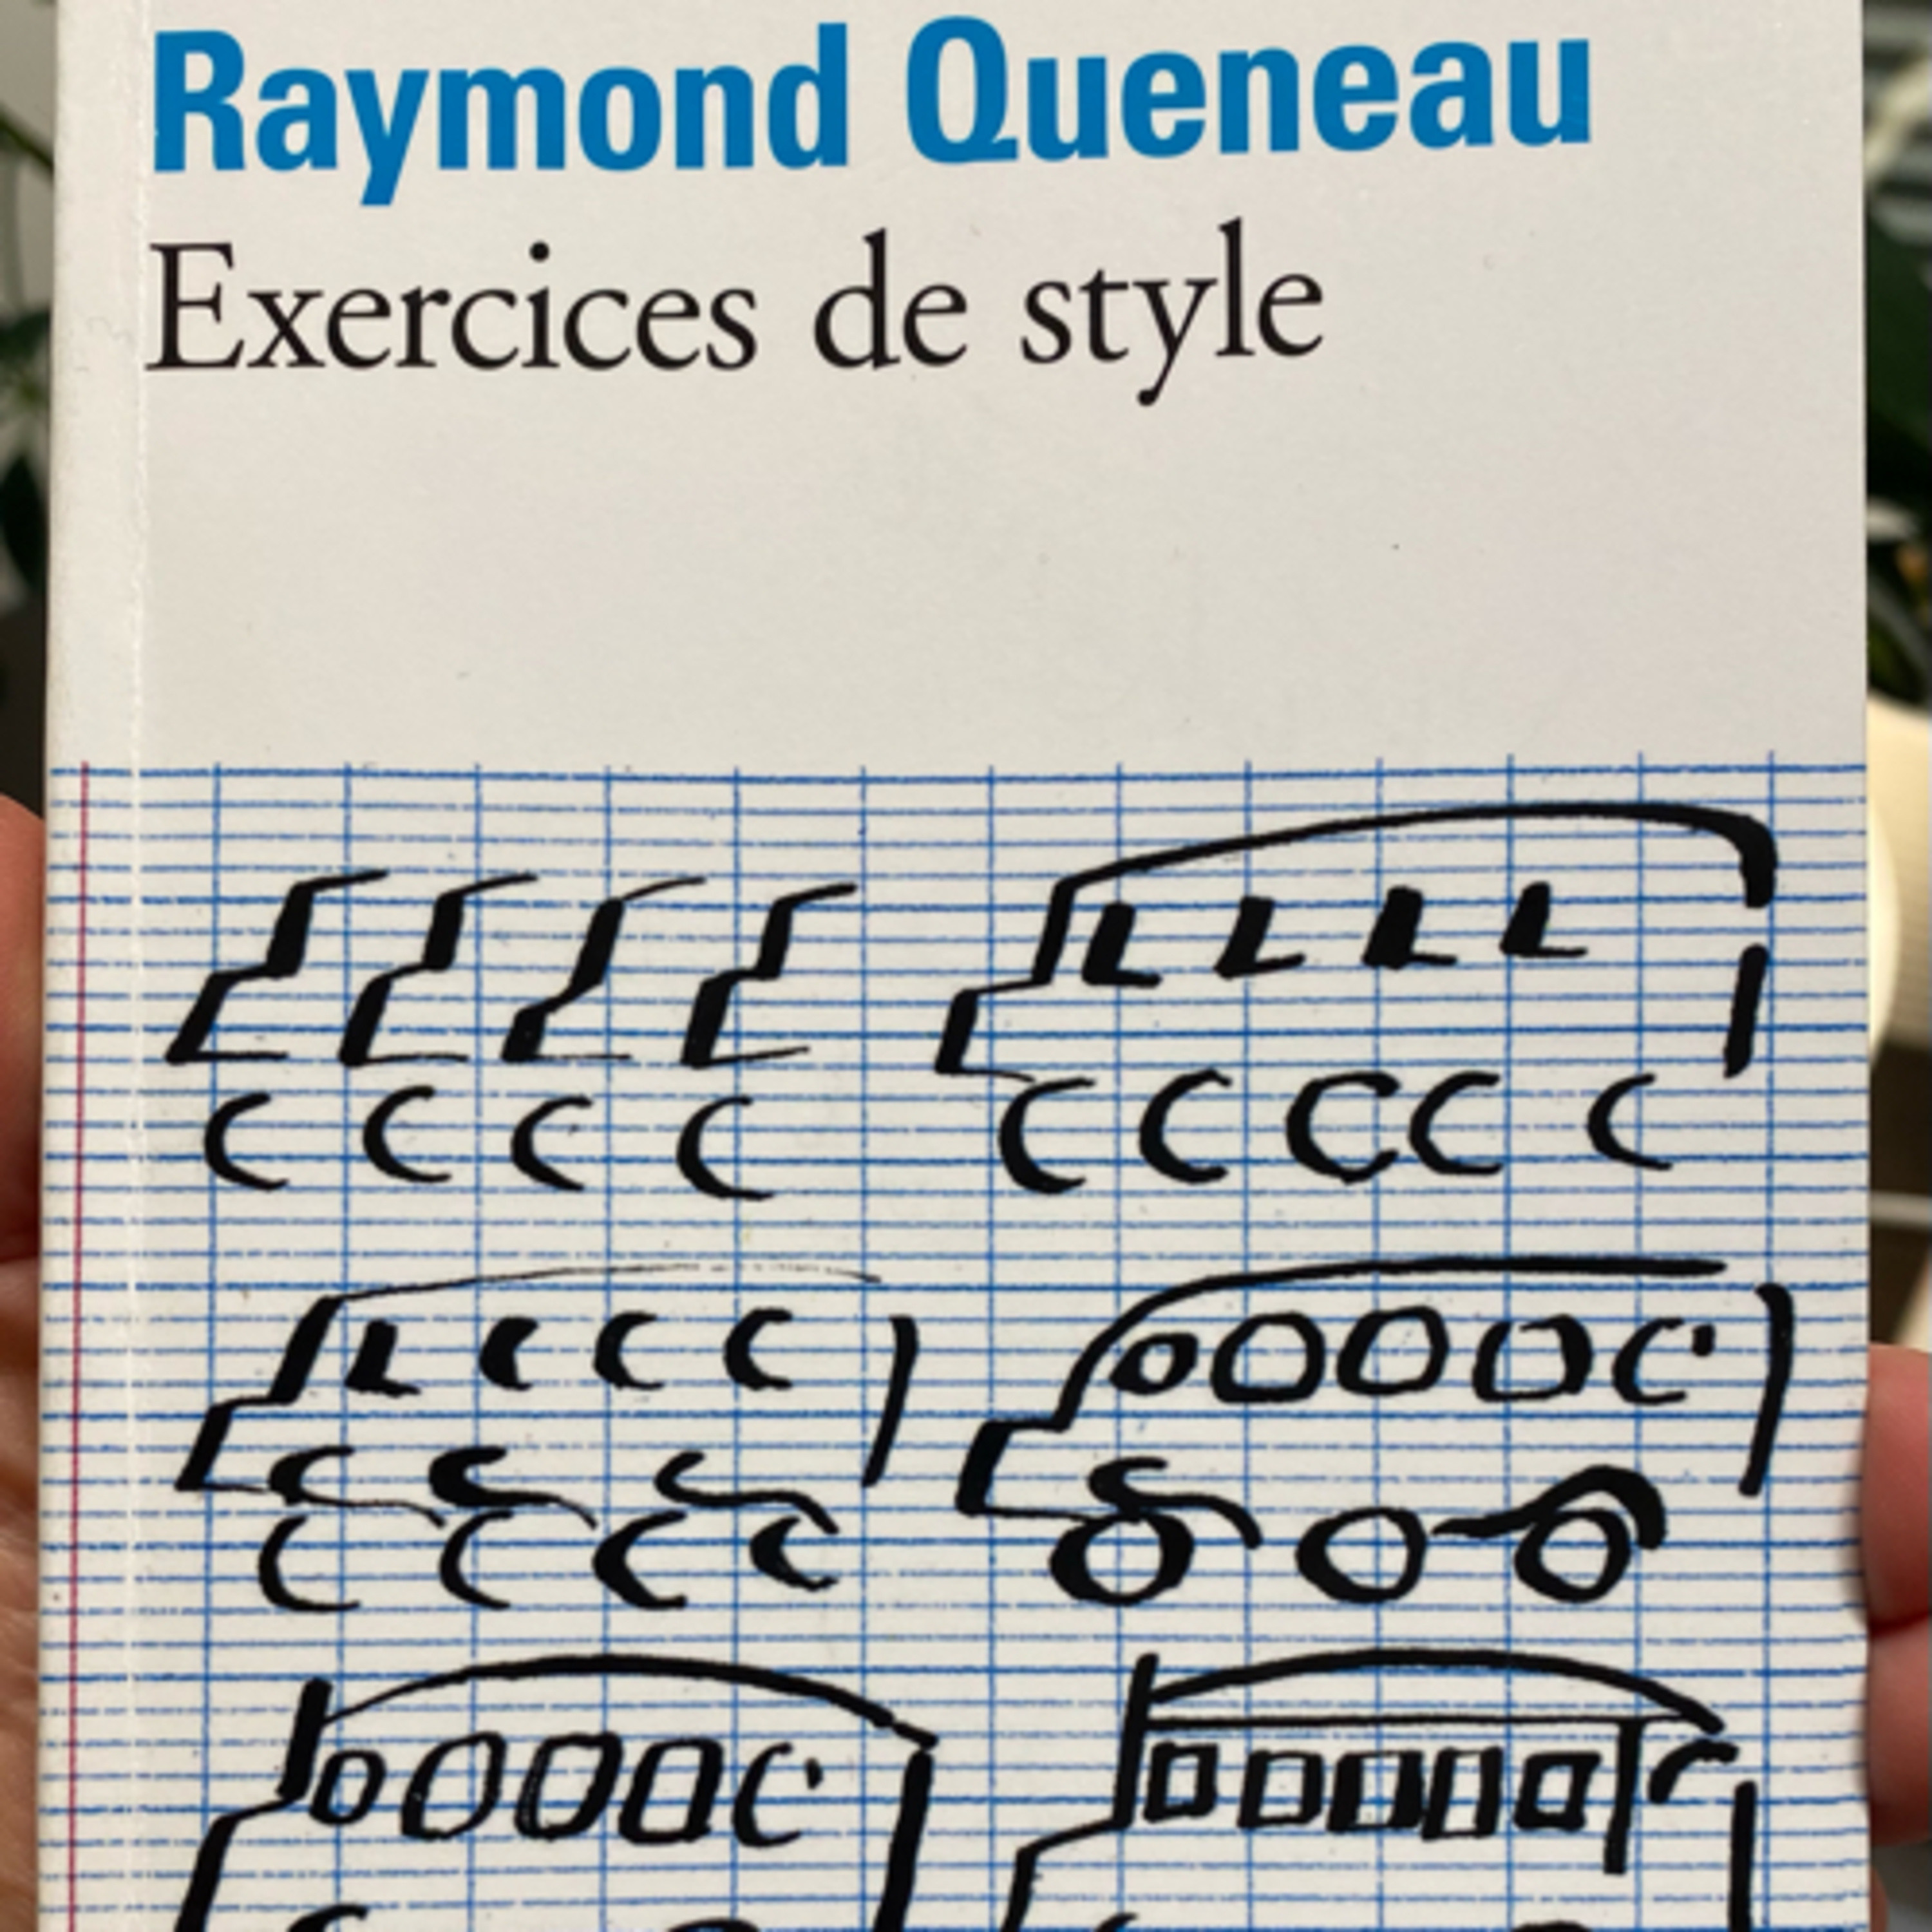 Raymond Queneau
Exercices de style